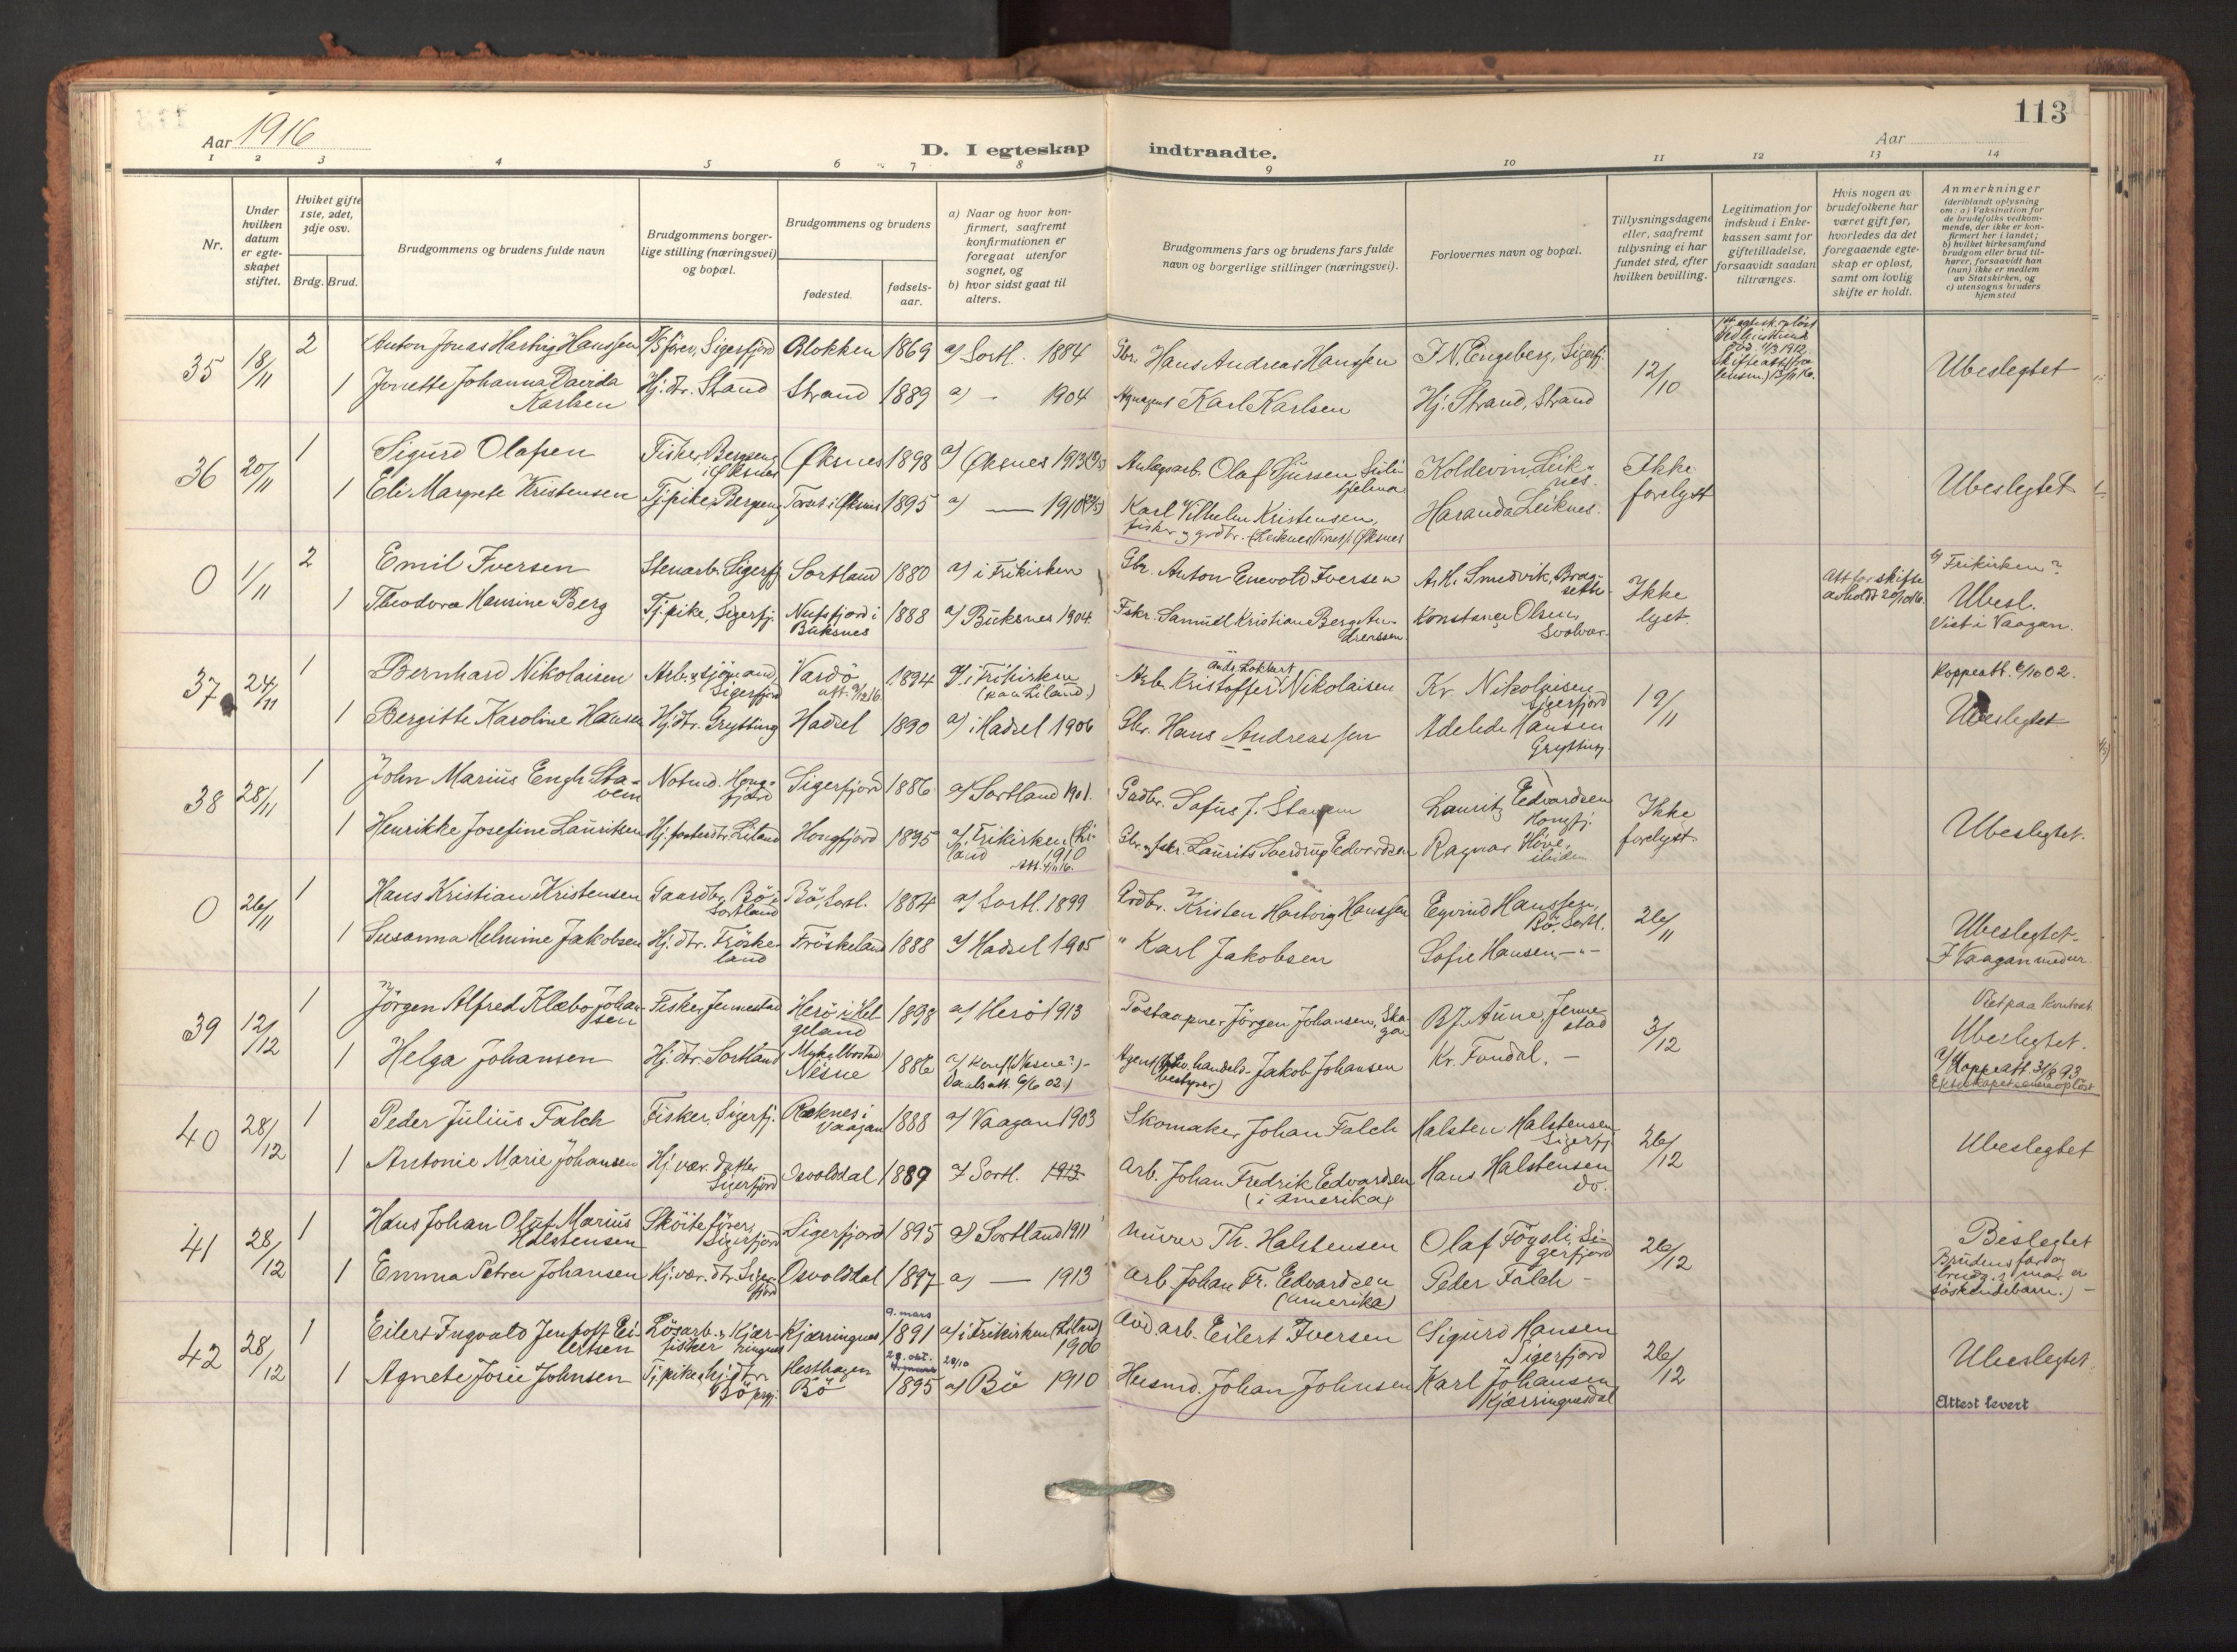 113
Aar 1916
D. I egteskap indtraadte.
Aar
1 2 3 4 5 6 7 8 9 10 11 12 13 14
Nr.
Under hvilken datum er egteskapet stiftet.
Hviket gifte 1ste, 2det, 3dje osv.
Brdg. Brud.
Brudgommens og brudens fulde navn
Brudgommens borgerlige stilling (næringsvei) og bopæl.
Brudgommens og brudens
fødested.
fødselsaar.
a) Naar og hvor konfirmert, saafremt konfirmationen er foregaat utenfor sognet, og
b) hvor sidst gaat til alters.
Brudgommens fars og brudens fars fulde navn og borgerlige stillinger (næringsvei).
Forlovernes navn og bopæl.
Tillysningsdagene eller, saafremt tillysning ei har fundet sted, efter hvilken bevilling.
Legitimation for indskud i Enkekassen samt for giftetilladelse, forsaavidt saadan tiltrænges.
Hvis nogen av brudefolkene har været gift før, hvorledes da det foregaaende egteskap er opløst, samt om lovlig skifte er holdt.
Anmerkninger (deriblandt oplysning om: a) Vaksination for de brudefolks vedkommende, der ikke er konfirmert her i landet; b) hvilket kirkesamfund brudgom eller brud tilhører, forsaavidt han (hun) ikke er medlem av Statskirken, og c) utensogns bruders hjemsted
35 18/11 2 Anton Jonas Hartvig Hanssen D/S fører, Sigerfjord Blokken 1869 a) Sortl. 1884 Gbr. Hans Andreas Hanssen J. N. Engeberg, Sigerfj. 12/10 Ubeslegtet
1 Jonette Johanna Davida Karlsen Hj. dtr. Strand Strand 1889 a) - 1904 Karl Karlsen Hj. Strand, Strand
36 20/11 1 Sigurd Olafsen Fisker, Bergseng i Øksnes Øksnes 1898 a) Øksnes 1913 Anlægsarb. Olaf Sjursen Koldevin Leiknes. Ikke forelyst Ubeslegtet
1 Eli Margrete Kristensen Tj.pike, Bergseng i Øksnes 1895 a) — 1910 Karl Vilhelm Kristensen, fisker og grdbr. Haranda Leiknes.
0 1/11 2 Emil Iversen Stenarb. Sigerfj. Sortland 1880 a) i Frikirken Gbr. Anton Enevold Iversen A. H. Smedvik, Ikke lyst. Att for skifte avholdt 20/10 16. b) Frikirken? Ubesl. Viet i Vaagan.
1 Theodora Hansine Berg Tj.pike, Sigerfj. Nusfjord i Buksnes 1888 a) Buksnes 1904. Fskr. Samuel Kristian Berg Andreassen Konstance Olsen, Svolvær.
37 24/11 1 Bernhard Nikolaisen Arb. & sjømand, Sigerfjord Vardö 1894 a) i Frikirken (paa Liland) Arb. Kristoffer Nikolaisen Kr. Nikolaisen Sigerfjord 19/11 Koppeatt. 6/10 02.
1 Bergitte Karoline Hansen Hj.dtr. Grytting Hadsel 1890 a) i Hadsel 1906 Gbr. Hans Andreassen Adelede Hansen Grytting. Ubeslegtet
38 28/11 1 John Marius Engh Stavem Notmd. Hongfjord Sigerfjord 1886 a) Sortland 1901. Gadbr. Sofus J. Stavem Laurits Edvardsen Hongfj. Ikke forelyst. Ubeslegtet.
1 Henrikke Josefine Lauritsen Hj. Liland Hongfjord 1895 a) Frikirken (Liland 1910 Gbr. & fskr. Laurits Sverdrup Edvardsen Ragnar Hove, ibiden
0 26/11 1 Hans Kristian Kristensen Gaardbr. Bö i Sortland Bö, Sortl. 1884 a) Sortl. 1899 Grdbr. Kristen Hartvig Hanssen Eyvind Hanssen, Bö, Sortl. 26/11 Ubeslegtet.
1 Susanna Helmine Jakobsen Hj. dtr. Fröskeland Fröskeland 1888 a) Hadsel 1905 " Karl Jakobsen Sofie Hansen, —"—
39 12/12 1 Jörgen Alfred Klæbo Johansen Fisker, Jennestad Herö i Helgeland 1898 a) Herö 1913 Postaapner Jörgen Johansen, B. J. Aune, Jennestad 3/12 Viet paa kontoret. Ubeslegtet.
1 Helga Johansen Hj. dtr. Sortland Nesne 1886 a) konf. (Nesne?) - Agent Jakob Johansen Kr. Fondal. — Koppeatt. 31/8 93.
40 28/12 1 Peder Julius Falch Fisker, Sigerfj. Reknes i Vaagan 1888 a) Vaagan 1903 Skomaker Johan Falch Halsten Halstensen Sigerfj. 26/12 Ubeslegtet
1 Antonie Marie Johansen Hj. vær. datter Sigerfjord Osvolddal 1889 a) Sortl. 1913 Arb. Johan Fredrik Edvardsen (i Amerika) Hans Halstensen do.
41 28/12 1 Hans Johan Oluf Marius Halstensen Sköitefører, Sigerfjord Sigerfjord 1895 a) Sortland 1911 Murer Th. Halstensen Olaf Föysli, Sigerfjord 26/12 Beslegtet
Brudens far og brudg.s mor er söskendebarn.)
1 Emma Petra Johansen Hj. vær. dtr. Sigerfjord Osvolddal 1897 a) — 1913 Arb. Johan Fr. Edvardsen (Amerika) Peder Falch -
42 28/12 1 Eilert Ingvald Jentoft Eilertsen Lösarb. & fisker Kjærringnes Kjærringnes 9. mars 1891 a) i Frikirken (Liland) 1906 arb. Eilert Iversen Sigurd Hansen Sigerfjord 26/12 Ubeslegtet.
1 Agnete Josie Johnsen Tj.pike & hj.dtr. Bö Hesthagen Bö 29. okt. 1895 a) Bö 1910 Husmd. Johan Johnsen Karl Johansen, Kjærringnesdal
Attest levert